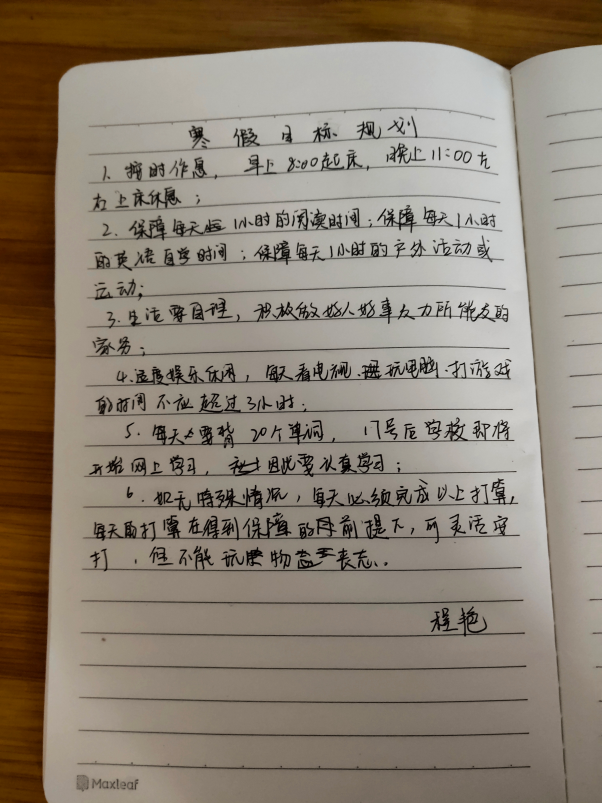 寒假目标规划
1. 按时作息，早上8:00起床，晚上11:00左
右上床休息；
2. 保障每天1小时的阅读时间；保障每天1小时
的英语自学时间；保障每天1小时的户外活动或
运动；
3. 生活要自理，积极做好人好事及力所能及的
家务；
4. 适度娱乐休闲，每天看电视、玩电脑、打游戏
的时间不应超过3小时；
5. 每天要背20个单词，17号后学校即将
开始网上学习，因此要认真学习；
6. 如无特殊情况，每天必须完成以上打算，
每天的打算在得到保障的前提下，可灵活安
打，但不能玩物丧志。
程艳
Maxleaf